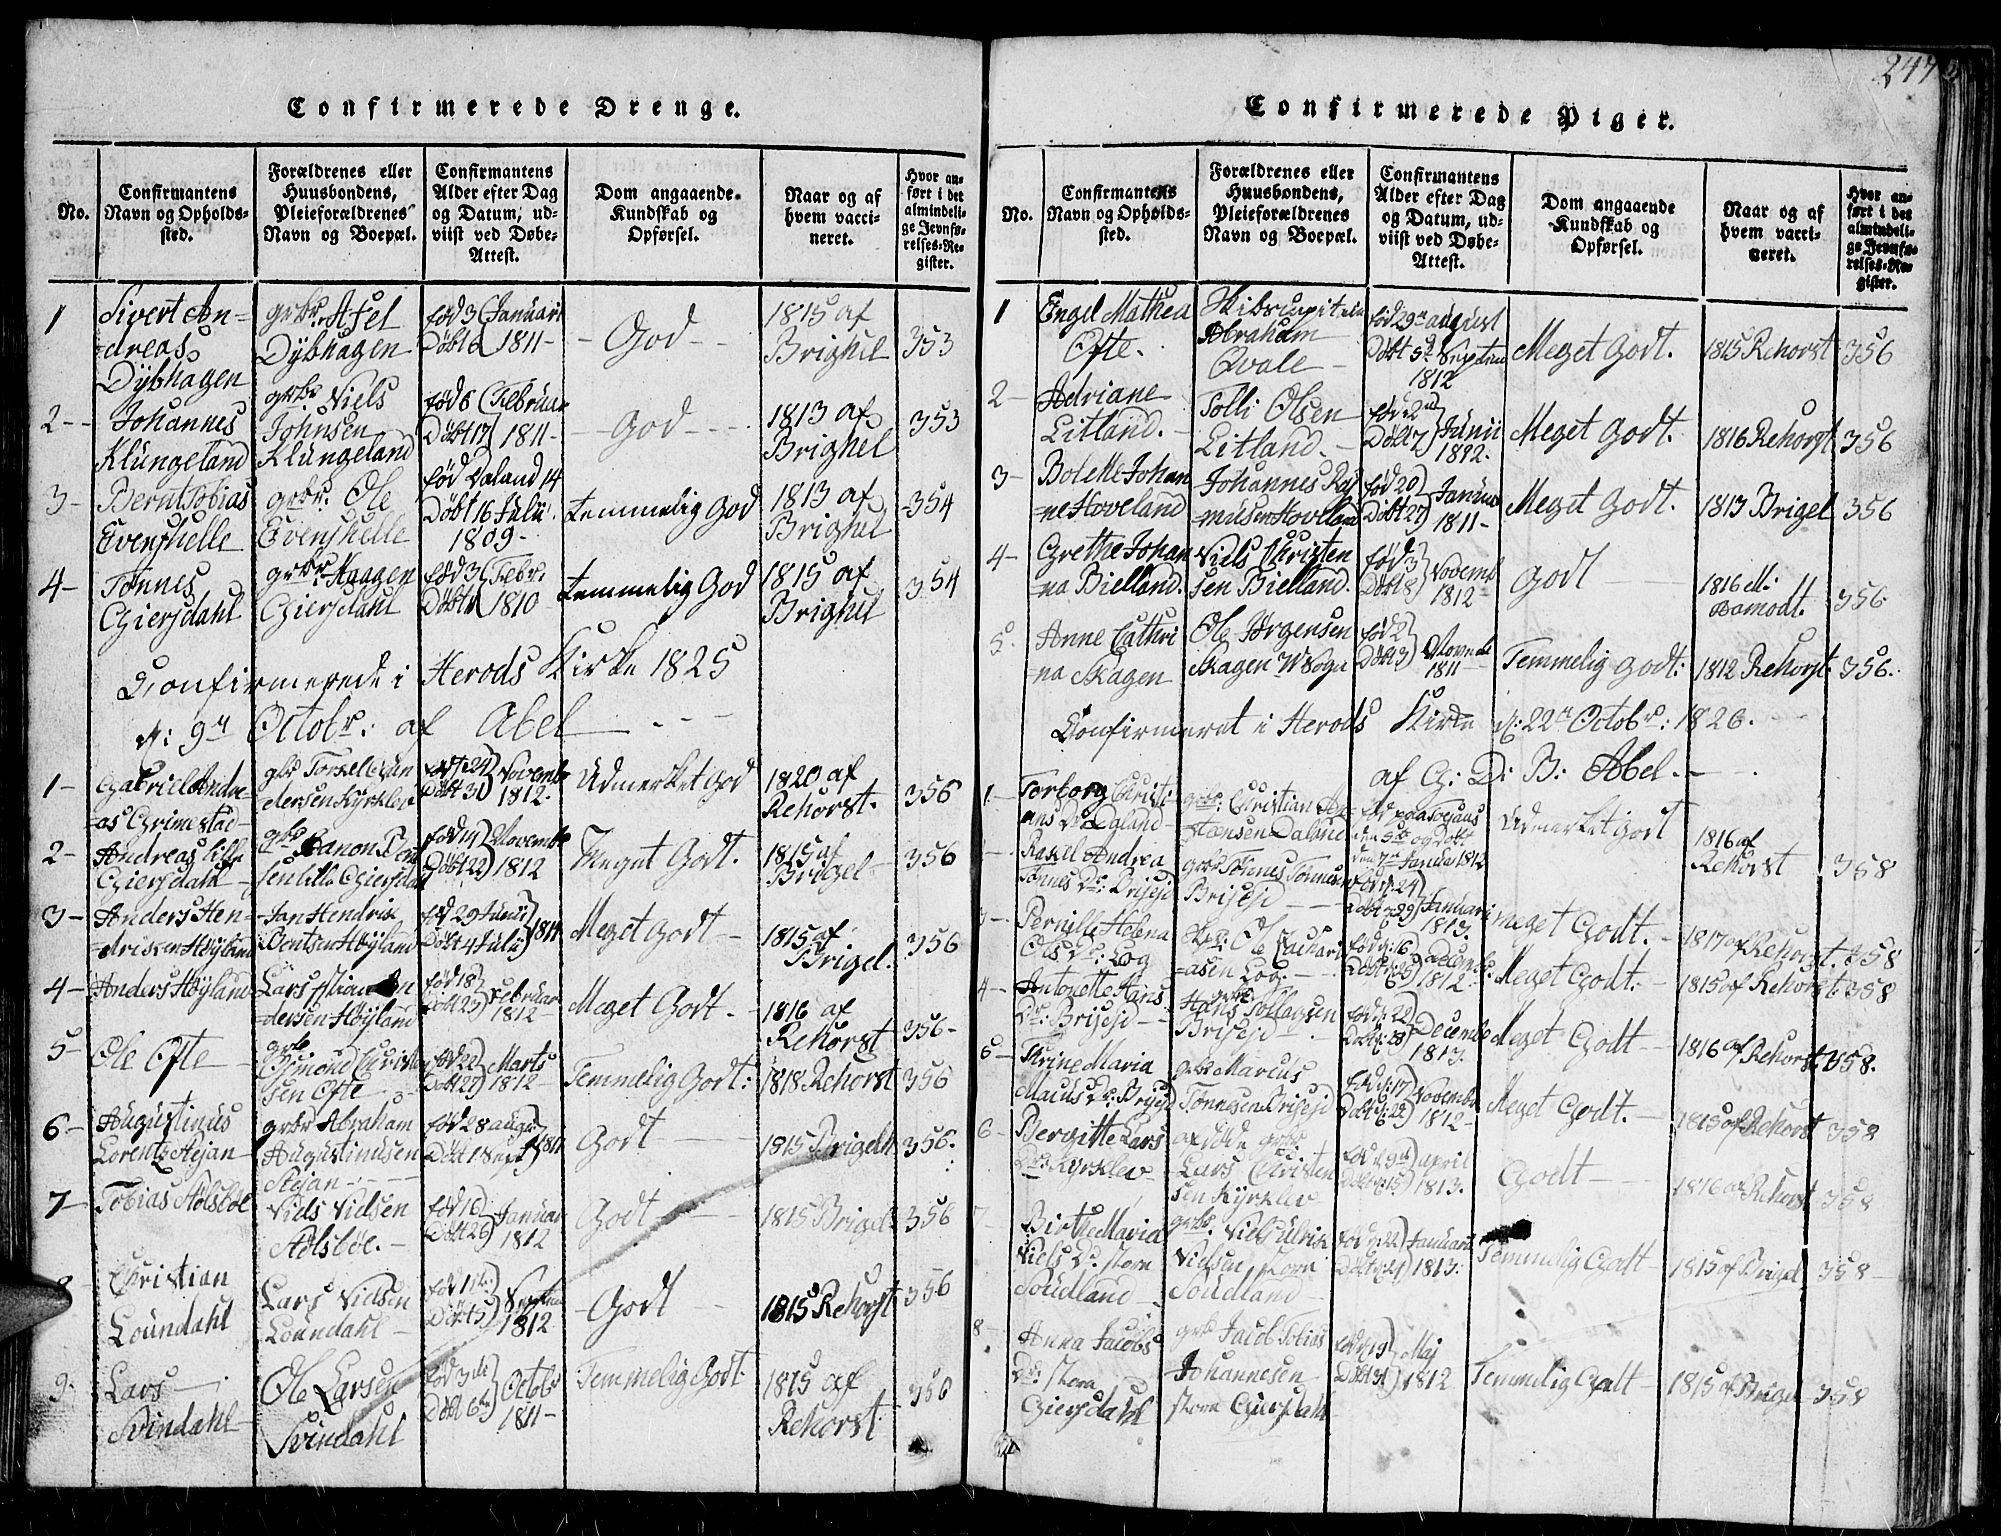 247
Confirmerede Drenge.
No.
Confirmantens
Navn og Opholds-
sted.
Forældrenes eller
Huusbondens,
Pleieforældrenes
Navn og Boepæl.
Confirmantens
Alder efter Dag
og Datum, ud-
viist ved Døbe-
Attest.
Dom angaaende
Kundskab og
Opførsel.
Naar og af
hvem vacci-
neret.
Hvor an-
ført i det
almindeli-
ge Jevnfø-
relses-Re-
gister.
1
Sivert An-
dreas
Dybhagen
grbr. Axel
Dybhagen
fød 3 Januari
Døbt 6 1811-
- God -
1815 af
Brighel
353
2--
Johannes
Klungeland
grbr Niels
Johnsen
Klungeland
fød 6 Februar
Døbt 17 1811-
- God ---
1813 af
Brighel
353
3-
Bernt Tobias
Evenshelle
grbr. Ole
Evenshelle
fød Daland 14
Døbt 16 Julii
1809-
temmelig God
1813 af
Brighel
354
4-
Tønnes
Giersdahl
grbr. Haagen
Giersdahl
fød 3 Febr.
Døbt 1810-
temmelig God
1815 af
Brighel
354
Confirmerede i Herods Kirke 1825
d: 9de Octobr: af Abel - - -
1-
Gabriel Andre-
as Grimestad-
dersen Kyrklev
Novembr
1812.
Udmerket God
1820 af
Rehorst.
356
2-
Andreas lille
Giersdahl-
sen lille Giersdahl
fød 14 Novembr
Døbt 22 1812
Meget Godt.
1815 af
Brigel-
356
3-
Anders Hen-
driksen Høyland
Jan Hendrik
Bentsen Høyland
fød 29 Junii
Døbt 4 Julii 1811
Meget Godt -
1815 af
Brigel.
356
4-
Anders Høyland
Lars
dersen Høyland
fød 18
Døbt 23 Februar
1812-
Meget Godt -
1816 af
Rehorst
356-
5-
Ole Ofte -
grbr
Simond Christen
sen Ofte -
fød 22 Marts
1812-
Temmelig Godt:
1818 Rehorst
356
6-
Augustinus
Lorentz Stejan
grbr Abraham
Augustinusen
Stejan
fød 28 augu
Døbt 1 Sept 1811
Godt -
1815 Brigel
356.
7-
Tobias Adlsbøe
Niels Nielsen
Adlsbøe.-
fød 16 Januar
Døbt 26 1812
Godt -
1815 Brigel
356
8-
Christian
Loundahl
Lars Nielsen
Loundahl -
Døbt 5
1812
-Godt -
1815 Rehorst
356
9.
Lars -
Svindahl
Ole Larsen
Svindahl
fød 3
Døbt 6 Octobr
1811-
Temmelig Godt.
1815 af
Rehorst
Confirmerede Piger.
No.
Confirmantens
Navn og Opholds-
sted.
Forældrenes eller
Huusbondens,
Pleieforældrenes
Navn og Boepæl.
Confirmantens
Alder efter Dag
og Datum, ud-
viist ved Døbe-
Attest.
Dom angaaende
Kundskab og
Opførsel.
Naar og af
hvem vacci-
neret.
Hvor an-
ført i det
almindeli-
ge Jevnfø-
relses-Re-
gister.
1
Engel Mathea
Ofte.
Skibscapitain
Abraham
Qvale -
fød 29de august
Døbt 5de Septem
1812
Meget Godt.
1815 Rehorst
356
2-
Adriane
Litland.-
Tolli Olsen
Litland.-
fød 2d
Døbt 7 Junii
1812.
Meget Godt.
1816 Rehorst
356
3-
Bolette Johan
ne Hoveland
Johannes Ras
musen Hoveland
fød 20 Januar
Døbt 27 1811-
Meget Godt.
1813 Brigel
356
4-
Grethe Johan
na Bielland
Niels Christen
sen Bielland.
fød 3 Novemb
Døbt 8 1812-
Godt -
1816 M:
Bomodt.
356
5.
Anne Cathri
na Skagen
Ole Jørgensen
Skagen V Sogn
fød 2 Novemb
Døbt 3 1811-
Temmelig Godt:
1812 Rehorst.
356.
Confirmeret i Herods Kirke d: 22de Octobr: 1826.
af G: D: B: Abel.-
1-
Torborg Christi
ans Dr. Daland -
grbr: Christian
Daland
fød paa
den 5te og døbt
den 7de Januar 1812
Udmerket Godt
1816 af
Rehorst
358
Rakel Andrea
Tønnes Dr: Briseid
grbr Tønnes Tønnesen
Briseid - -
fød d: 24
Døbt d: 29 Januari
1813.
meget Godt.-
1817 af Rehorst.
358
3-
Pernille Helena
Ols Dr: Log
Ole Zachari
asen Log.-
fød d: 16 Decemb
1812-
Meget Godt.-
1815 af Rehorst.
358
4-
Antonette Hans
Dr: Briseid -
grbr
Hans Tollagsen
Briseid -
fød d: 22 Decembe
Døbt d: 28 1813.
Meget Godt -
1816 af Rehorst.
358.
5-
Thrine Maria
Dr: Briseid
grbr Marcus
Tønnesen Briseid
fød d: 17 Novembr
1812-
Meget Godt.-
1815 af Rehorst
358
6-
Bergitte Lars
Dr. Kyrklev-
grbr
Lars Christen
sen Kyrklev
april
1813.
Godt -
1816 af Rehorst
358
7-
Birthe Maria
Niels Dr. store
Soudland -
grbr: Niels Ulrik
Nielsen store
Soudland -
fød d: 22 Januari
1813.
Temmelig Godt -
1815 af Brigel
358-
8-
Anna Jacobs
Dr: store
Giersdahl
grbr Jacob Tobias
Johannesen
store Giersdahl
fød d: 19 Maj
Døbt d: 31 1812
Temmelig Godt -
1815 af Brigel
358